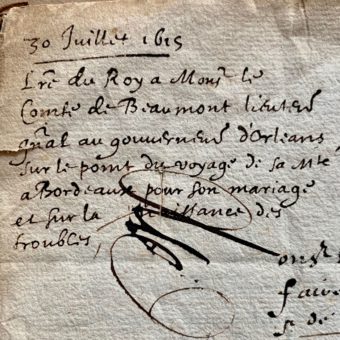 30 Juillet 1615
Lre du Roy a Monsr le
Comte de Beaumont lieutent
gnal au gouvernemt d'Orleans,
sur le point du voyage de sa Mte
a Bordeaux pour son mariage
et sur la naissance des
troubles,
onsr
faire
se de